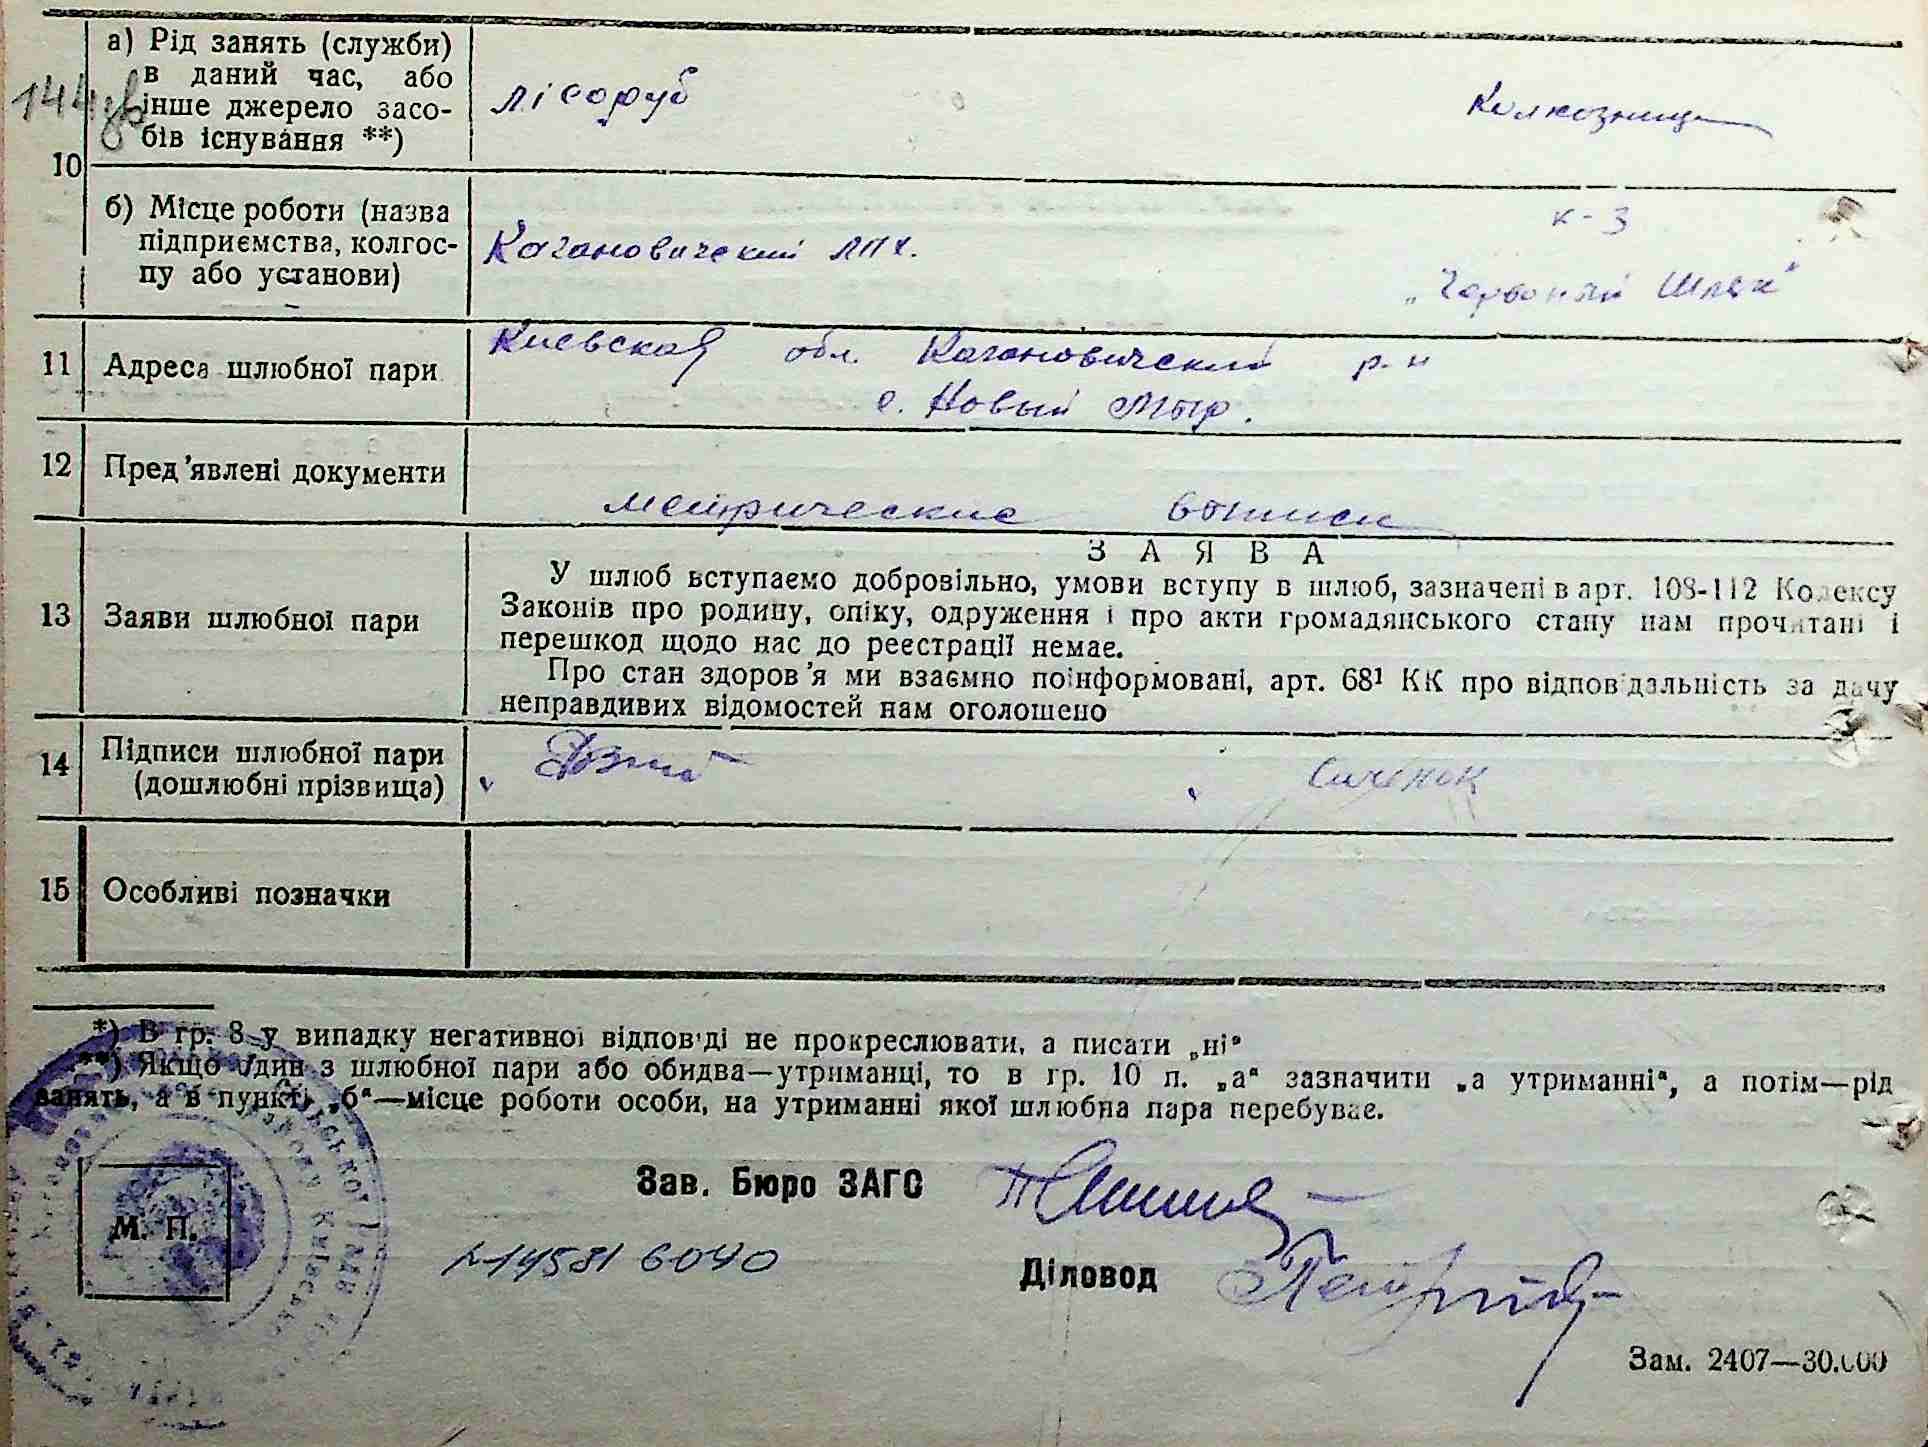 144зв
10
а) Рід занять (служби)
в даний час, або
інше джерело засо-
бів існування **)
лісоруб
Колхозница
б) Місце роботи (назва
підприємства, колгос-
пу або установи)
Кагановический ЛПХ.
к-з
„Червоный Шлях"
11 Адреса шлюбної пари
Киевская обл. Кагановический р-н
с. Новый Мир.
12 Пред'явлені документи
метрические выписи
13 Заяви шлюбної пари
ЗАЯВА
У шлюб вступаємо добровільно, умови вступу в шлюб, зазначені в арт. 108-112 Кодексу
Законів про родину, опіку, одруження і про акти громадянського стану нам прочитані і
перешкод щодо нас до реєстрації немає.
Про стан здоров'я ми взаємно поінформовані, арт. 68¹ КК про відповідальність за дачу
неправдивих відомостей нам оголошено
14 Підписи шлюбної пари
(дошлюбні прізвища)
Сиченок
15 Особливі позначки
*) В гр. 8 у випадку негативної відповіді не прокреслювати, а писати „ні"
**) Якщо один з шлюбної пари або обидва—утриманці, то в гр. 10 п. „а" зазначити „а утриманні", а потім—рід
занять, а в пункті „б"—місце роботи особи, на утриманні якої шлюбна пара перебуває.
Зав. Бюро ЗАГС
М. П.
Діловод
Зам. 2407—30.000